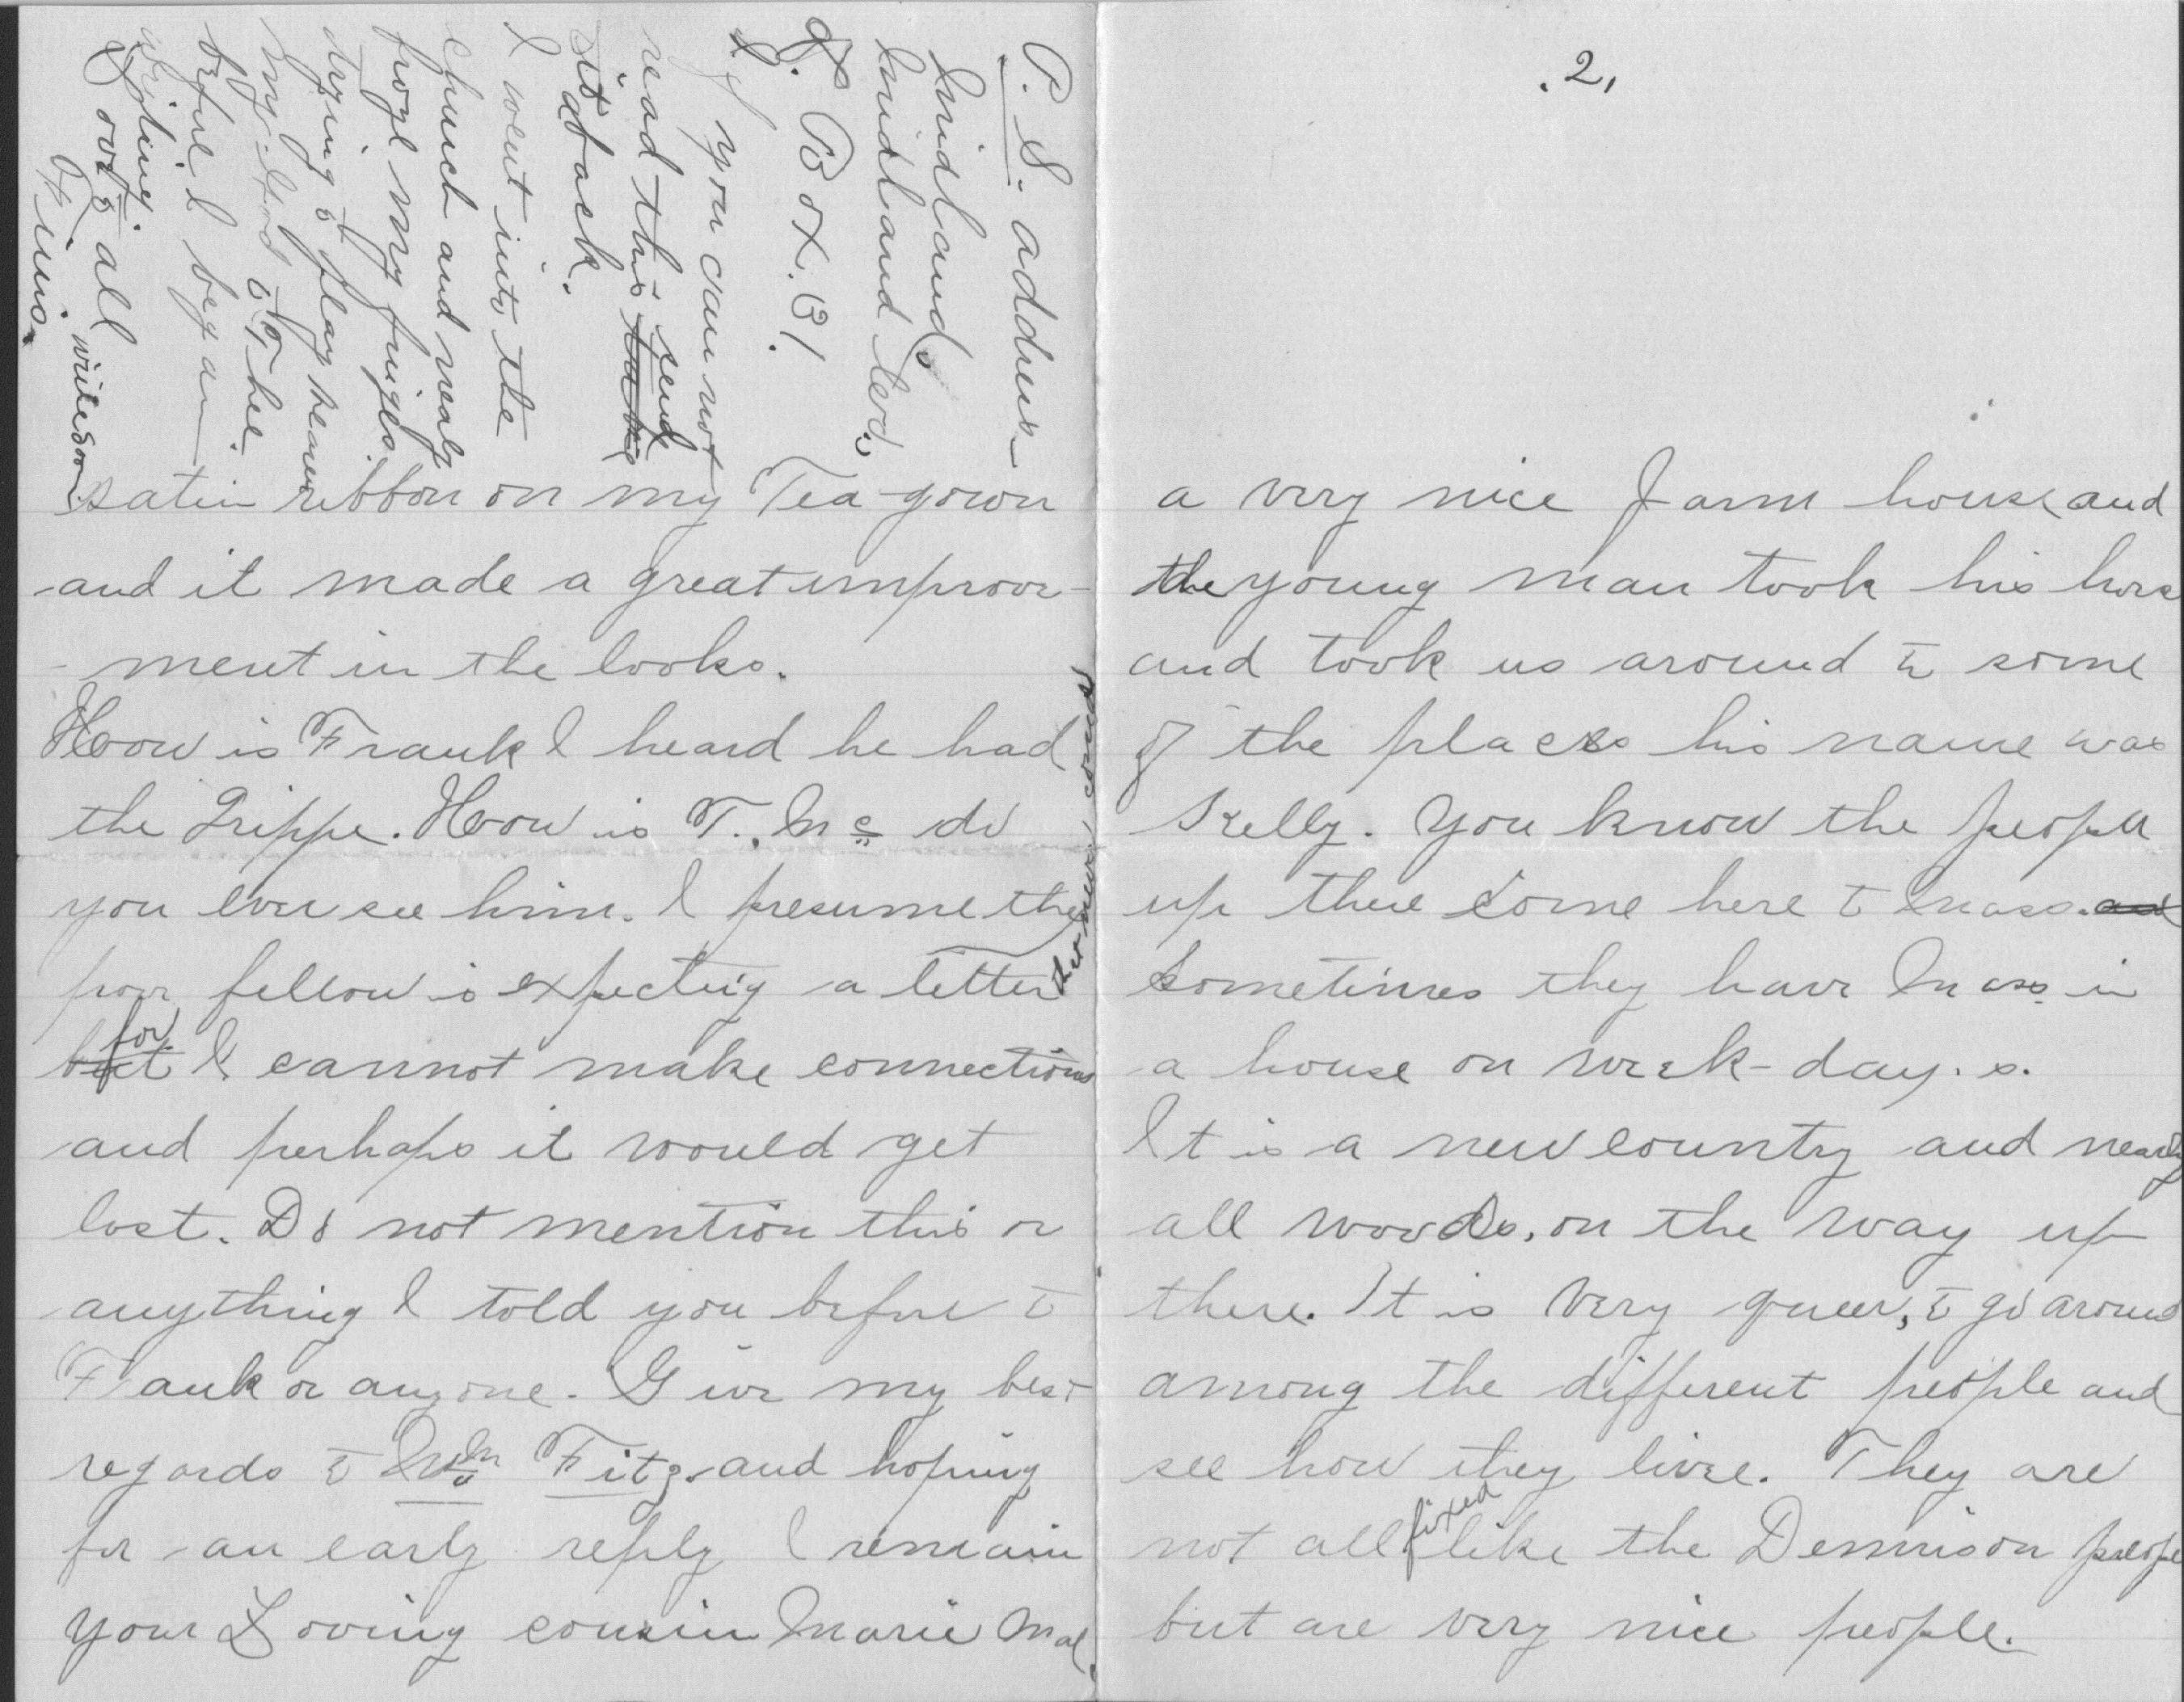 P. S. address
Midland,
Midland Co.,
Box. 31.
If you can not
read this send
it back.
I went into the
church and nearly
froze my fingers
trying to play
before I began
writing.
Love to all
satin ribbon on my Tea-gown
and it made a great improve-
-ment in the looks.
How is Frank I heard he had
the Grippe. How is T. Mc do
you ever see him. I presume the
poor fellow is expecting a letter
for
but I cannot make connections
and perhaps it would get
lost. Do not mention this or
anything I told you before to
Frank or anyone. Give my best
regards to Fitz. and hoping
for an early reply I remain
your Loving cousin Marie Mac.
.2.
a very nice farm house and
the young man took his horse
and took us around to some
of the places his name was
Kelly. You know the people
up there come here to Mass. and
sometimes they have Mass in
a house on week-day.s.
It is a new country and nearly
all woods, on the way up
there. It is very queer, to go around
among the different people and
see how they live. They are
fixed
not all like the Dennison people
but are very nice people.